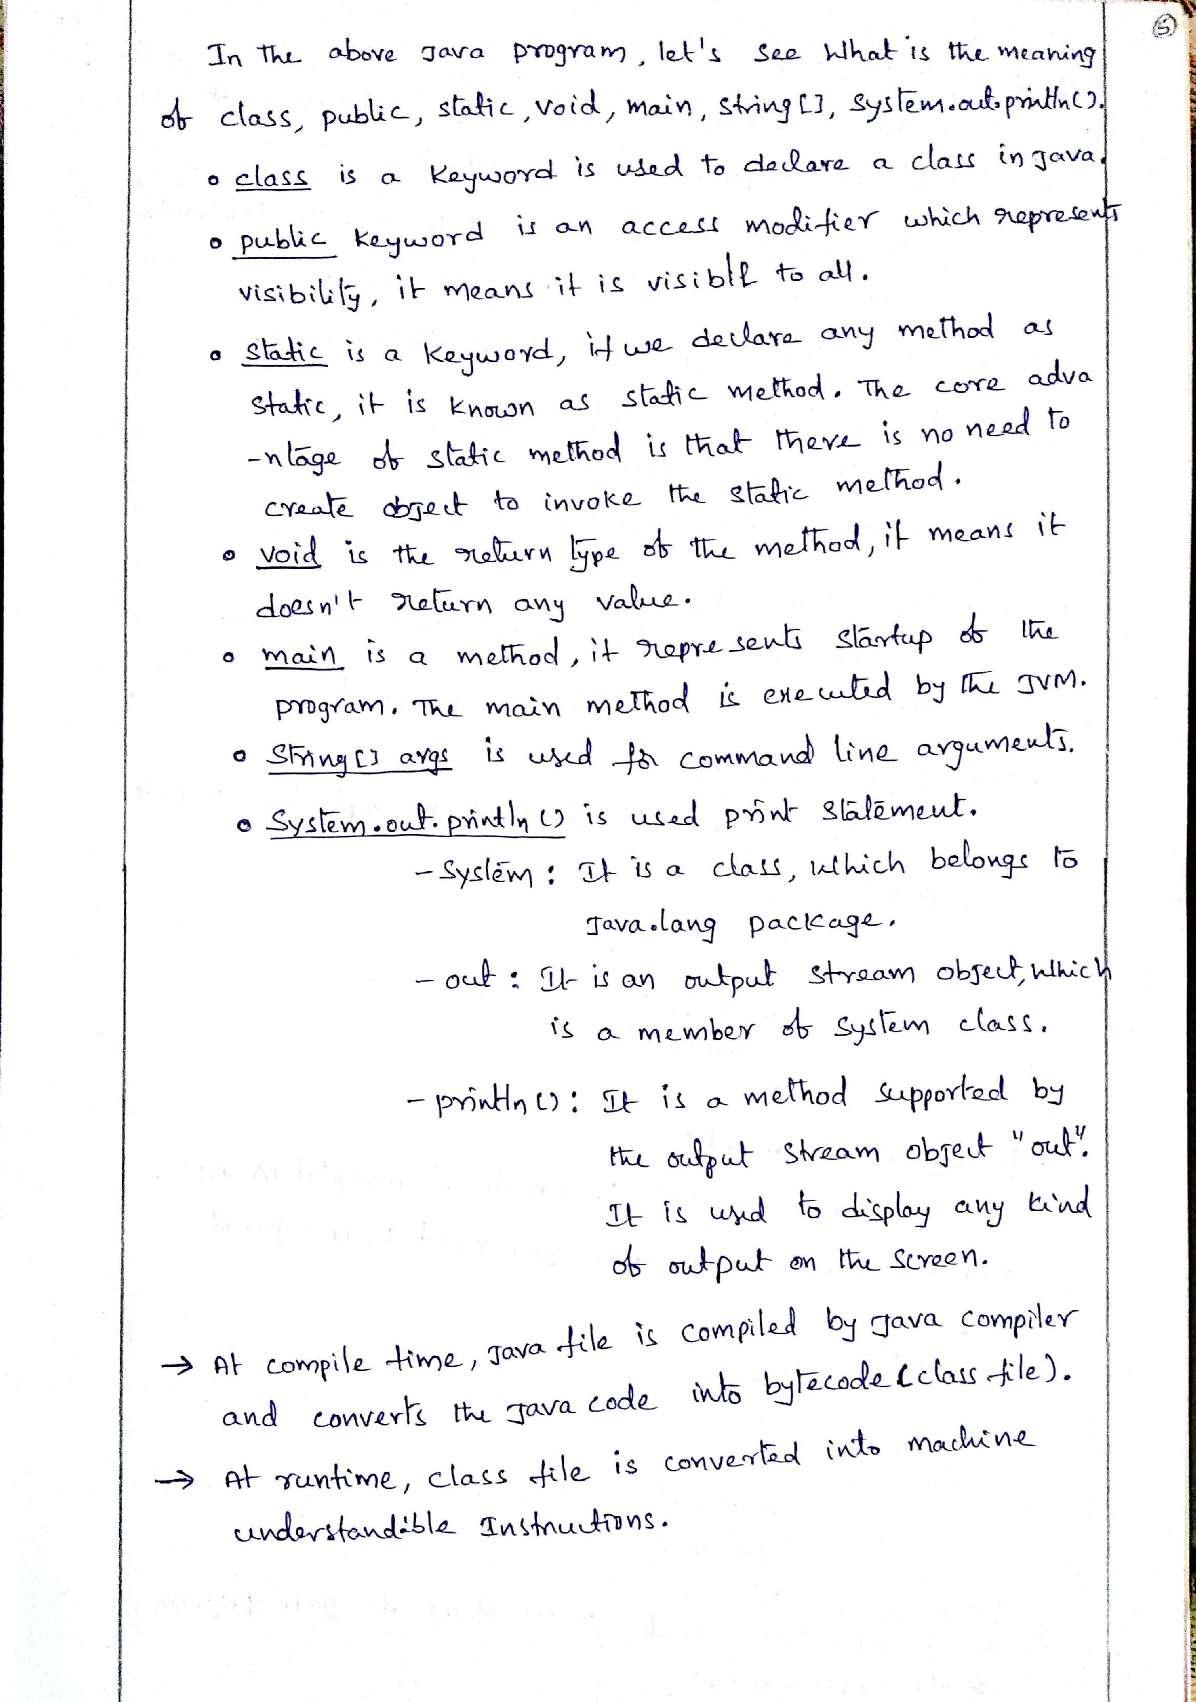 5
In the above Java program, let's see what is the meaning
of class, public, static, void, main, String[], System.out.println().
• class is a keyword is used to declare a class in Java.
• public keyword is an access modifier which represents
visibility, it means it is visible to all.
• static is a keyword, if we declare any method as
static, it is known as static method. The core adva
-ntage of static method is that there is no need to
create object to invoke the static method.
• void is the return type of the method, it means it
doesn't return any value.
• main is a method, it represents startup of the
program. The main method is executed by the JVM.
• String[] args is used for command line arguments.
• System.out.println() is used print statement.
- System : It is a class, which belongs to
Java.lang package.
- out : It is an output stream object, which
is a member of System class.
- println() : It is a method supported by
the output stream object "out".
It is used to display any kind
of output on the screen.
→ At compile time, Java file is compiled by Java compiler
and converts the Java code into bytecode (class file).
→ At runtime, class file is converted into machine
understandable Instructions.